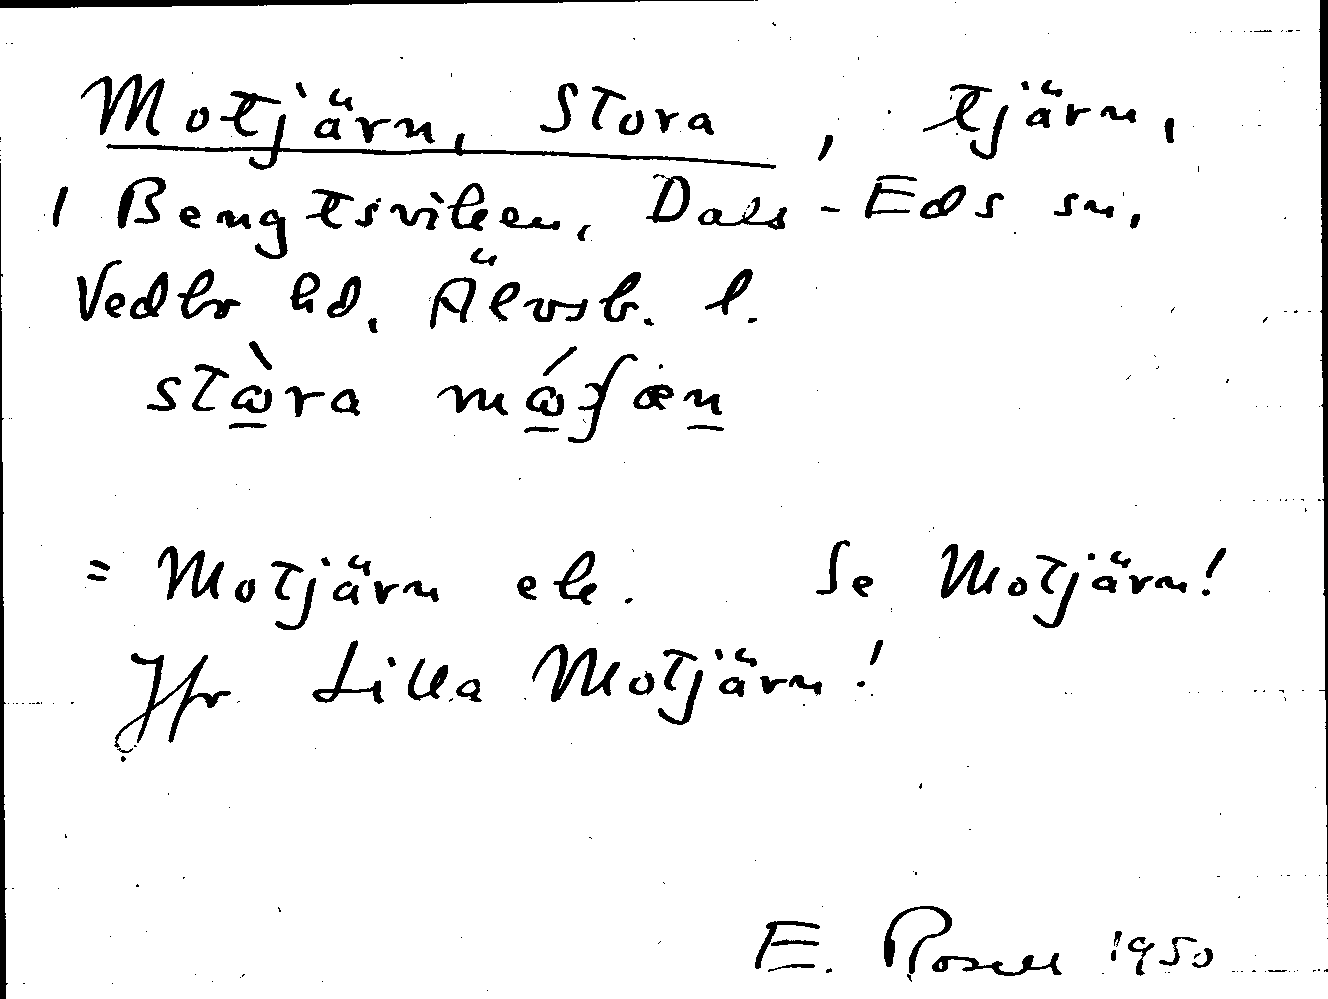 Motjärn, Stora, tjärn,
1 Bengtsviken, Dals-Eds sn,
Vedbo hd, Älvsb. l.
= Motjärn ek. Se Motjärn!
Jfr Lilla Motjärn!
E. Rosell 1950